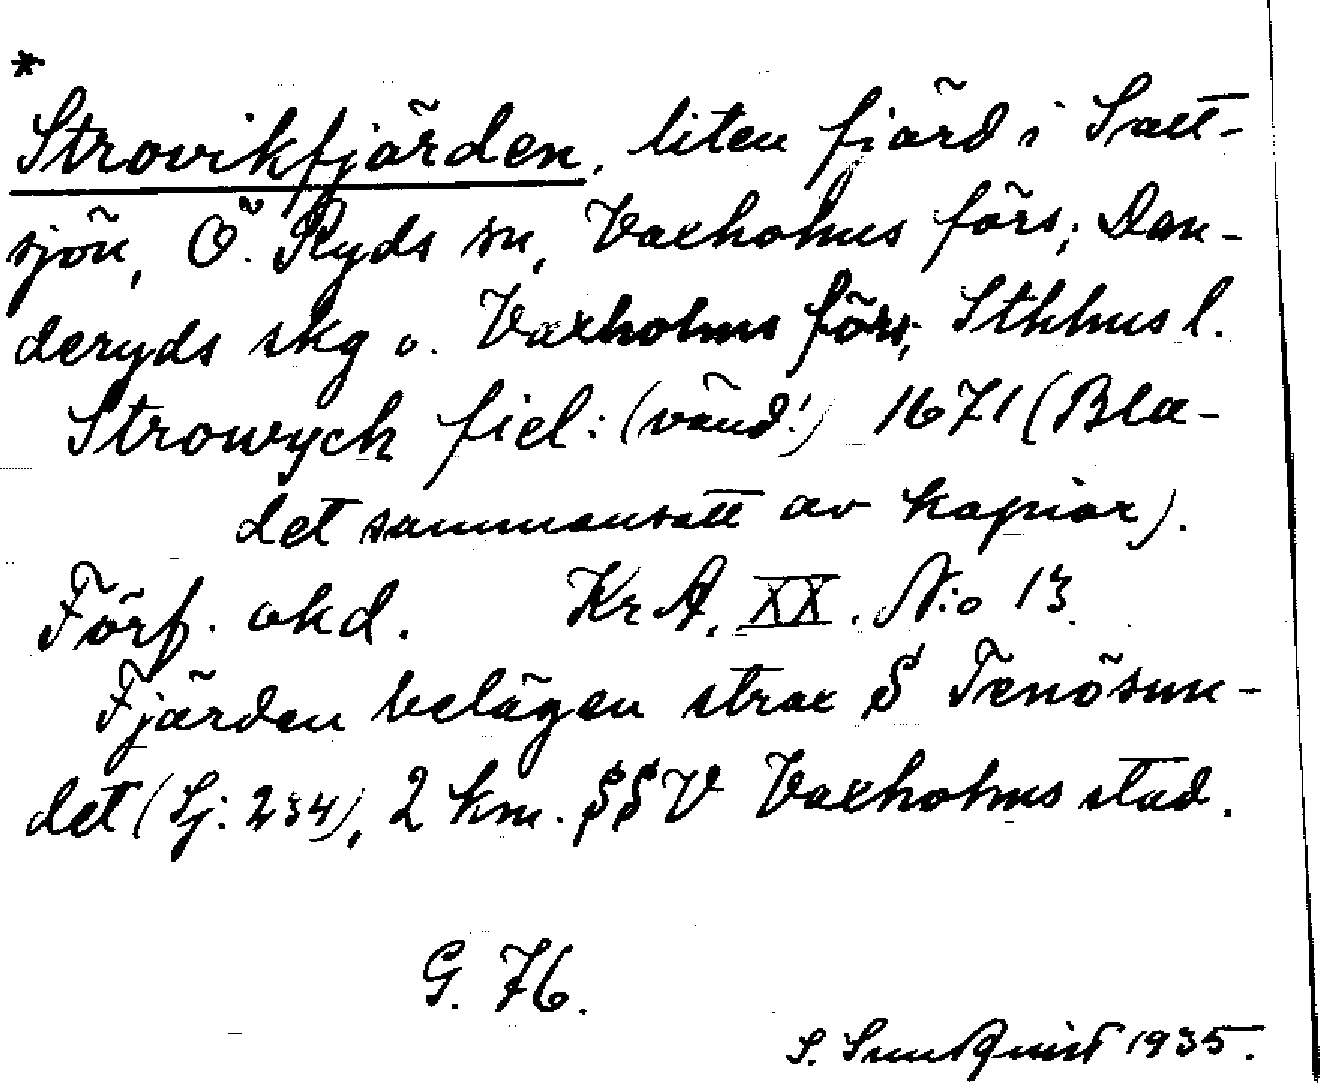 *
Strovikfjärden, liten fjärd i Salt-
sjön, Ö. Ryds sn, Vaxholms förs; Dan-
deryds skg o. Vaxholms förs, Sthlms l.
Strowych fiel: (vänd!) 1671 (Bla-
det sammansatt av kopior).
Förf. okd. Kr A. XX. No 13.
Fjärden belägen strax S Tenösun-
det (Sj: 234), 2 km. SSV Vaxholms stad.
G. 76.
S. Sundquist 1935.